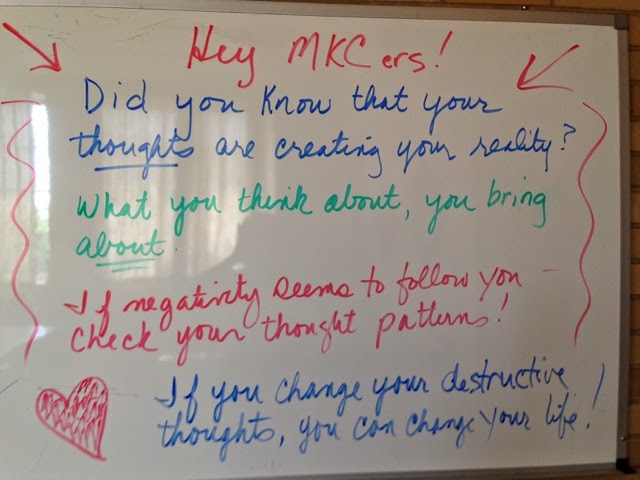 Hey MKCers!
Did you know that your
thoughts are creating your reality?
What you think about, you bring
about.
If negativity seems to follow you –
check your thought patterns!
If you change your destructive
thoughts, you can change your life!